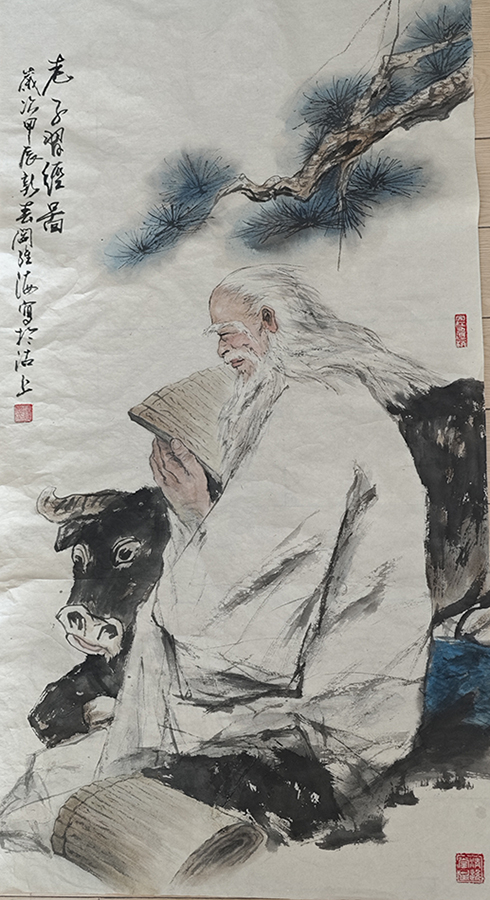 老子習經圖
歲次甲辰新春海寫於沽上